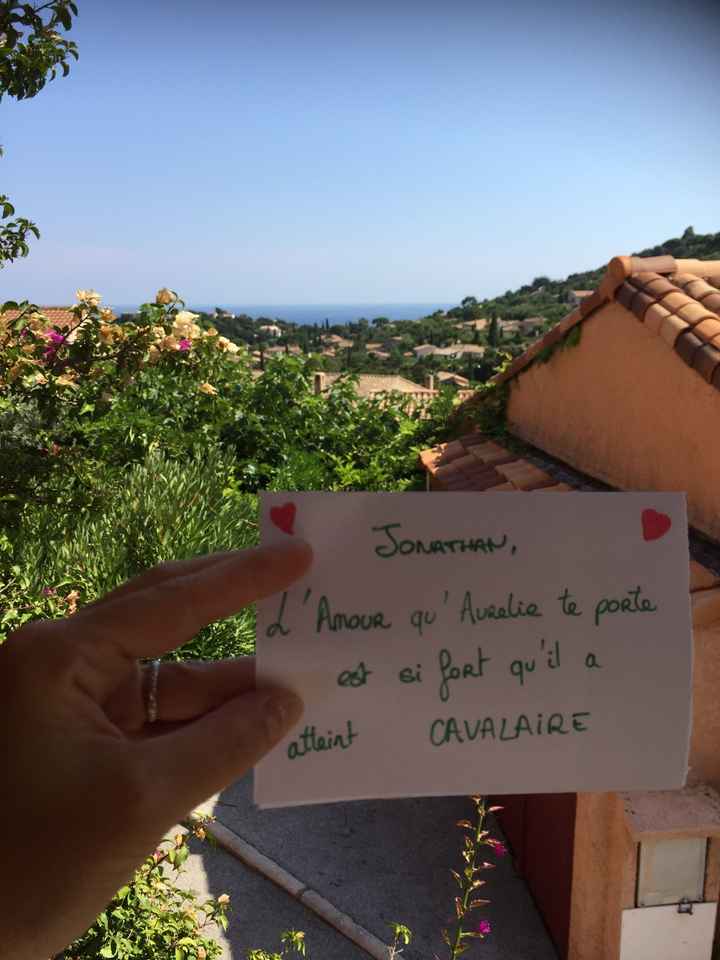 JONATHAN,
L'Amour qu'Aurelie te porte
est si fort qu'il a
atteint CAVALAIRE